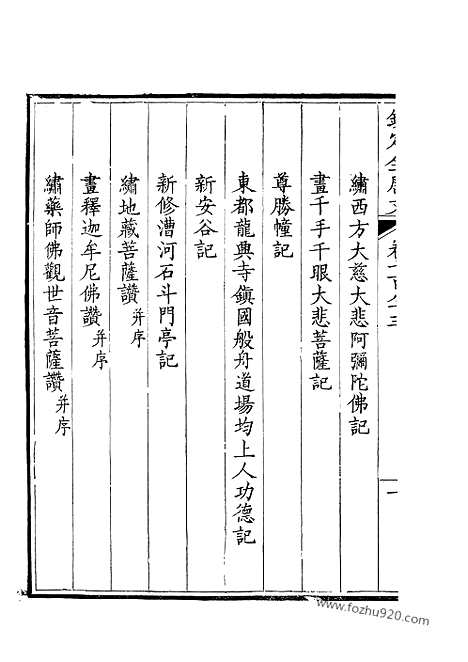 繡西方大慈大悲阿彌陀佛記
畫千手千眼大悲菩薩記
尊勝幢記
東都龍興寺鎮國般舟道場均上人功德記
新安谷記
新修漕河石斗門亭記
繡地藏菩薩讚并序
畫釋迦牟尼佛讚并序
繡藥師佛觀世音菩薩讚并序
一
www.fozhu920.com